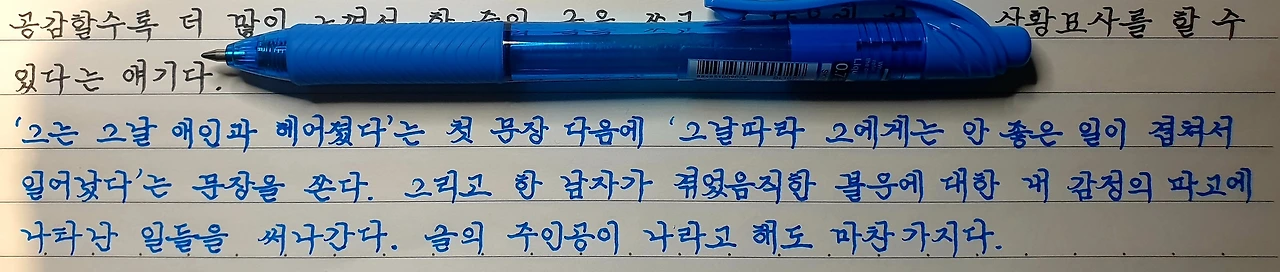 공감할수록 더 많이 느껴서 한 줄의 글을 쓰고 상황묘사를 할 수
있다는 얘기다.
'그는 그날 애인과 헤어졌다'는 첫 문장 다음에 '그날따라 그에게는 안 좋은 일이 겹쳐서
일어났다'는 문장을 쓴다. 그리고 한 남자가 겪었음직한 불운에 대한 내 감정의 파고에
나타난 일들을 써나간다. 글의 주인공이 나라고 해도 마찬가지다.
0.7